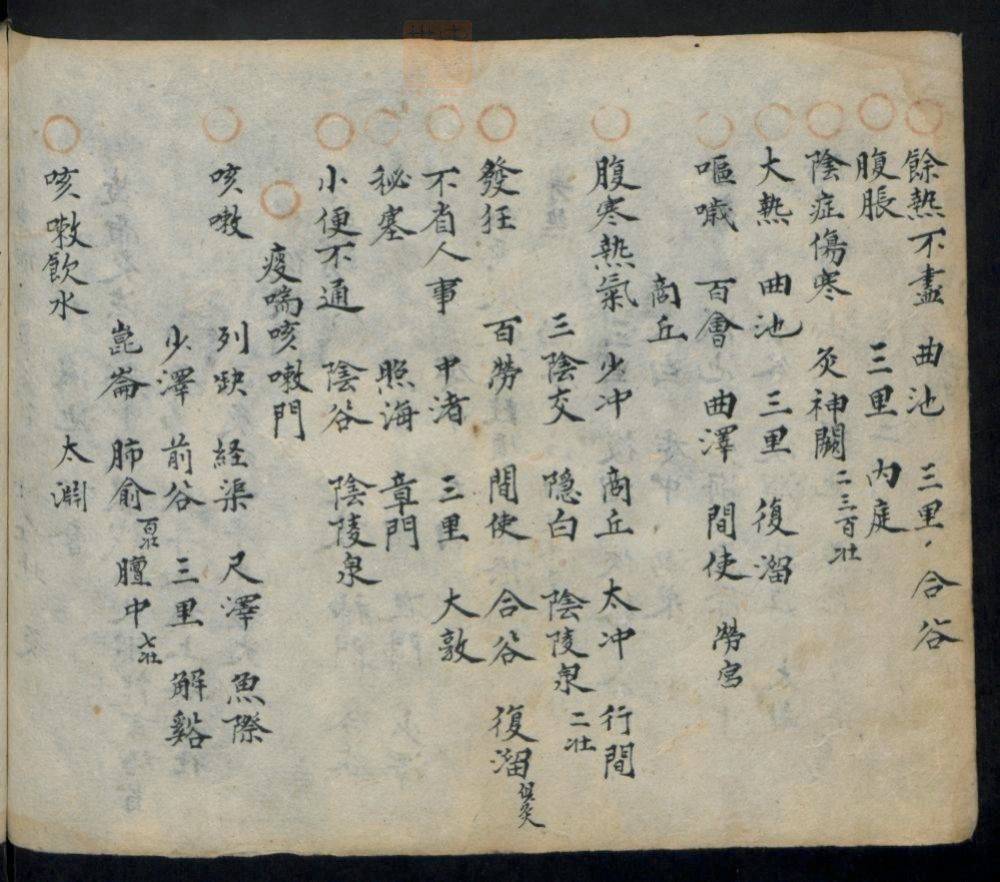 餘熱不盡 曲池 三里 合谷
腹脹 三里 內庭
陰症傷寒 灸神闕二三百壯
大熱 曲池 三里 復溜
嘔噦 百會 曲澤 間使 勞宮
商丘
腹寒熱氣 少冲 商丘 太冲 行間
三陰交 隱白 陰陵泉二壯
發狂 百勞 間使 合谷 復溜俱灸
不省人事 中渚 三里 大敦
秘塞 照海 章門
小便不通 陰谷 陰陵泉
痰喘咳嗽門
咳嗽 列缺 経渠 尺澤 魚際
少澤 前谷 三里 解谿
崑崙 肺俞百壯 膻中七壯
咳嗽飲水 太淵